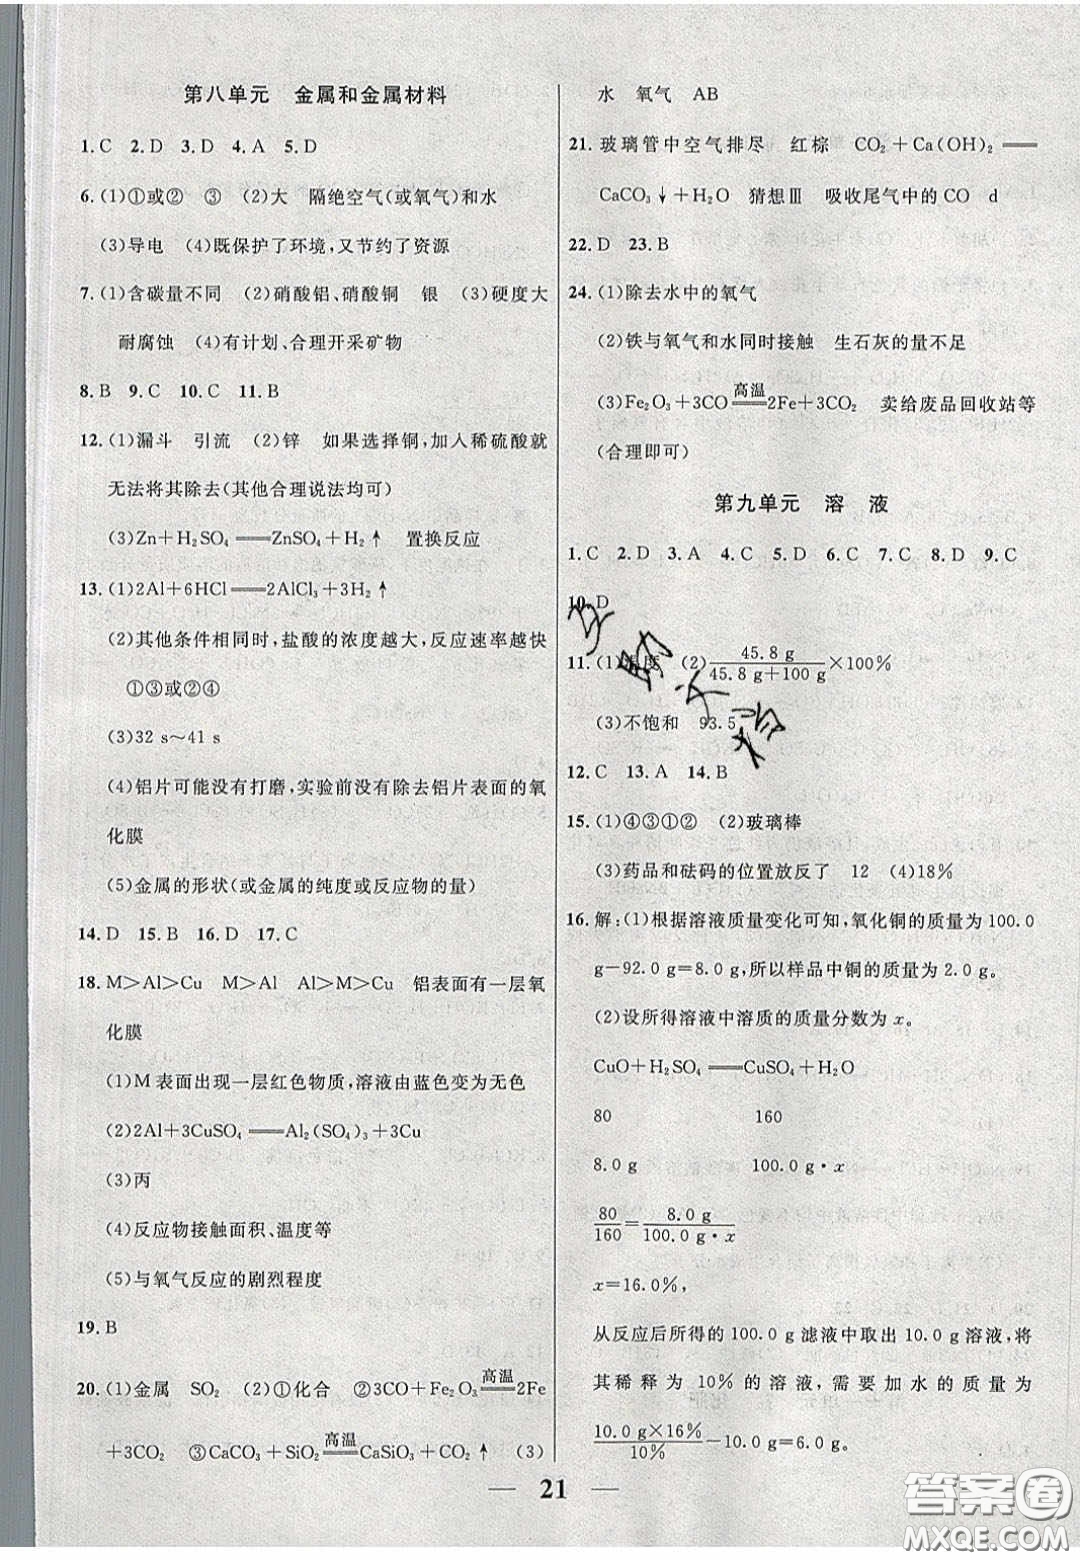 第八单元　金属和金属材料
1. C　2. D　3. D　4. A　5. D
6. (1)①或②　③　(2)大　隔绝空气(或氧气)和水
(3)导电　(4)既保护了环境,又节约了资源
7. (1)含碳量不同　(2)硝酸铝、硝酸铜　银　(3)硬度大
耐腐蚀　(4)有计划、合理开采矿物
8. B　9. C　10. C　11. B
12. (1)漏斗　引流　(2)锌　如果选择铜,加入稀硫酸就
无法将其除去(其他合理说法均可)
(3)Zn+H₂SO₄══ZnSO₄+H₂↑　置换反应
13. (1)2Al+6HCl══2AlCl₃+3H₂↑
(2)其他条件相同时,盐酸的浓度越大,反应速率越快
①③或②④
(3)32 s～41 s
(4)铝片可能没有打磨,实验前没有除去铝片表面的氧
化膜
(5)金属的形状(或金属的纯度或反应物的量)
14. D　15. B　16. D　17. C
18. M>Al>Cu　M>Al　Al>M>Cu　铝表面有一层氧
化膜
(1)M表面出现一层红色物质,溶液由蓝色变为无色
(2)2Al+3CuSO₄══Al₂(SO₄)₃+3Cu
(3)丙
(4)反应物接触面积、温度等
(5)与氧气反应的剧烈程度
19. B
20. (1)金属　SO₂　(2)①化合　②3CO+Fe₂O₃ 高温══ 2Fe
+3CO₂　③CaCO₃+SiO₂ 高温══ CaSiO₃+CO₂↑　(3)
水　氧气　AB
21. 玻璃管中空气排尽　红棕　CO₂+Ca(OH)₂══
CaCO₃↓+H₂O　猜想Ⅲ　吸收尾气中的CO　d
22. D　23. B
24. (1)除去水中的氧气
(2)铁与氧气和水同时接触　生石灰的量不足
(3)Fe₂O₃+3CO 高温══ 2Fe+3CO₂　卖给废品回收站等
(合理即可)
第九单元　溶　液
1. C　2. D　3. A　4. C　5. D　6. C　7. C　8. D　9. C
10. D
11. (1)温度　(2) 45.8 g / (45.8 g+100 g) ×100%
(3)不饱和　93.5
12. C　13. A　14. B
15. (1)④③①②　(2)玻璃棒
(3)药品和砝码的位置放反了　12　(4)18%
16. 解:(1)根据溶液质量变化可知,氧化铜的质量为100.0
g-92.0 g=8.0 g,所以样品中铜的质量为2.0 g。
(2)设所得溶液中溶质的质量分数为x。
CuO+H₂SO₄══CuSO₄+H₂O
80　160
8.0 g　100.0 g·x
80/160 = 8.0 g / (100.0 g·x)
x=16.0%,
从反应后所得的100.0 g滤液中取出10.0 g溶液,将
其稀释为10%的溶液,需要加水的质量为
10.0 g×16% / 10% -10.0 g=6.0 g。
21
答案圈
MXQE.COM